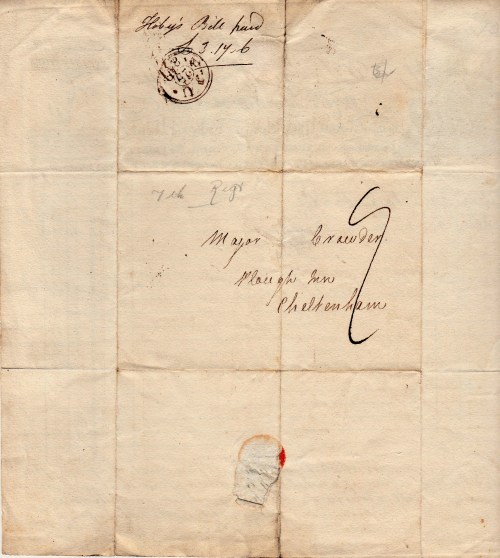 Hoby's Bill paid
£ 3.17.6
7th Regt
Major Crowder
Plough Inn
Cheltenham